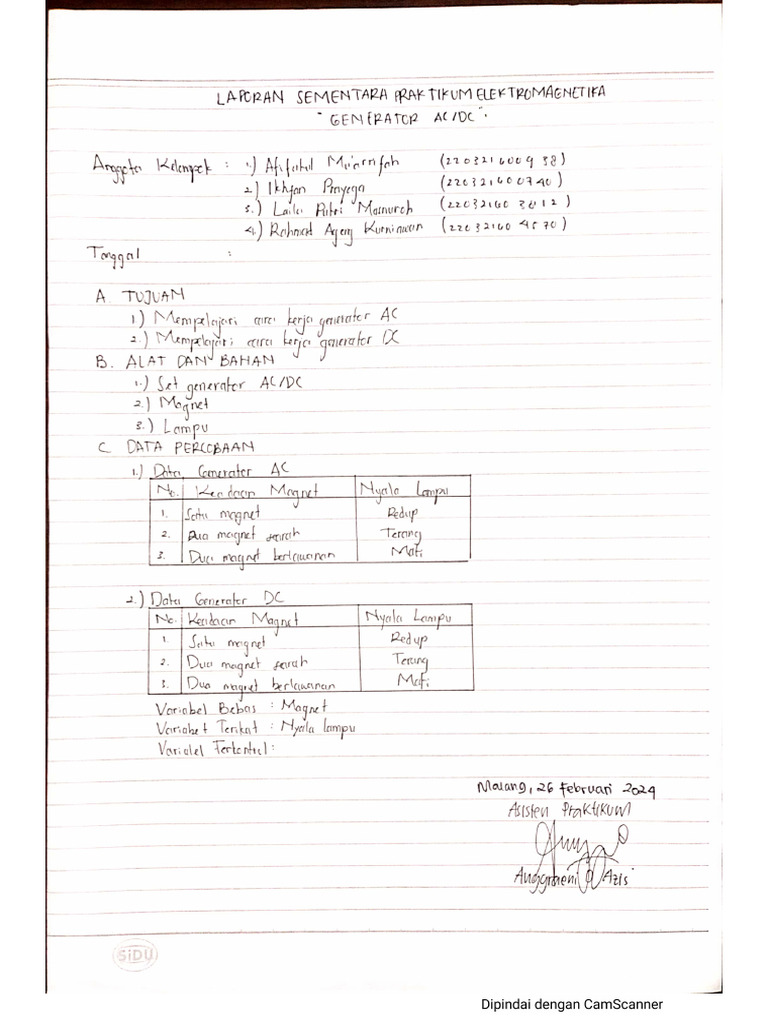 LAPORAN SEMENTARA PRAKTIKUM ELEKTROMAGNETIKA
"GENERATOR AC/DC".
Anggota Kelompok : 1.) Afifatul Ma'arrifah (220321600938)
2.) Ikhfan Prayoga (220321600740)
3.) Laila Putri Masnuroh (220321603812)
4.) Rahmat Agung Kurniawan (220321604570)
Tanggal :
A. TUJUAN
1.) Mempelajari cara kerja generator AC
2.) Mempelajari cara kerja generator DC
B. ALAT DAN BAHAN
1.) Set generator AC/DC
2.) Magnet
3.) Lampu
C. DATA PERCOBAAN
1.) Data Generator AC
No. Keadaan Magnet Nyala Lampu
1. Satu magnet Redup
2. Dua magnet searah Terang
3. Dua magnet berlawanan Mati
2.) Data Generator DC
No. Keadaan Magnet Nyala Lampu
1. Satu magnet Redup
2. Dua magnet searah Terang
3. Dua magnet berlawanan Mati
Variabel Bebas : Magnet
Variabel Terikat : Nyala lampu
Variabel Terkontrol :
Malang, 26 Februari 2024
Asisten Praktikum
Anggraeni Azis
SiDU
Dipindai dengan CamScanner